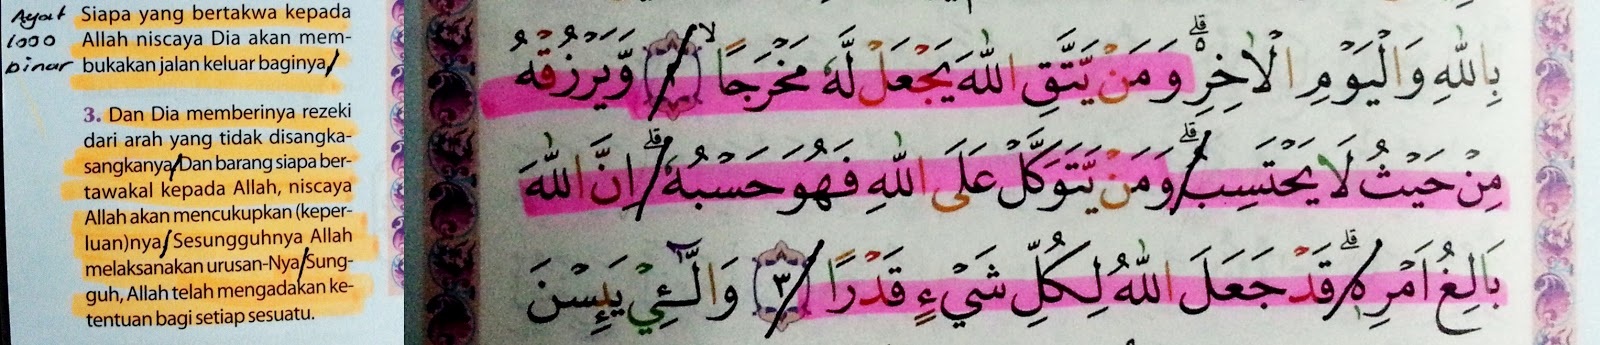 Ayat
1000
binar
Siapa yang bertakwa kepada
Allah niscaya Dia akan mem-
bukakan jalan keluar baginya/
3. Dan Dia memberinya rezeki
dari arah yang tidak disangka-
sangkanya/Dan barang siapa ber-
tawakal kepada Allah, niscaya
Allah akan mencukupkan (keper-
luan)nya/Sesungguhnya Allah
melaksanakan urusan-Nya/Sung-
guh, Allah telah mengadakan ke-
tentuan bagi setiap sesuatu.
بِاللّٰهِ وَالْيَوْمِ الْاٰخِرِ ەۗ وَمَنْ يَّتَّقِ اللّٰهَ يَجْعَلْ لَّهٗ مَخْرَجًا ۙ ﴿٢﴾ وَّيَرْزُقْهُ
مِنْ حَيْثُ لَا يَحْتَسِبُ ۗ وَمَنْ يَّتَوَكَّلْ عَلَى اللّٰهِ فَهُوَ حَسْبُهٗ ۗ اِنَّ اللّٰهَ
بَالِغُ اَمْرِهٖ ۗ قَدْ جَعَلَ اللّٰهُ لِكُلِّ شَيْءٍ قَدْرًا ﴿٣﴾ وَالّٰۤـِٔيْ يَىِٕسْنَ